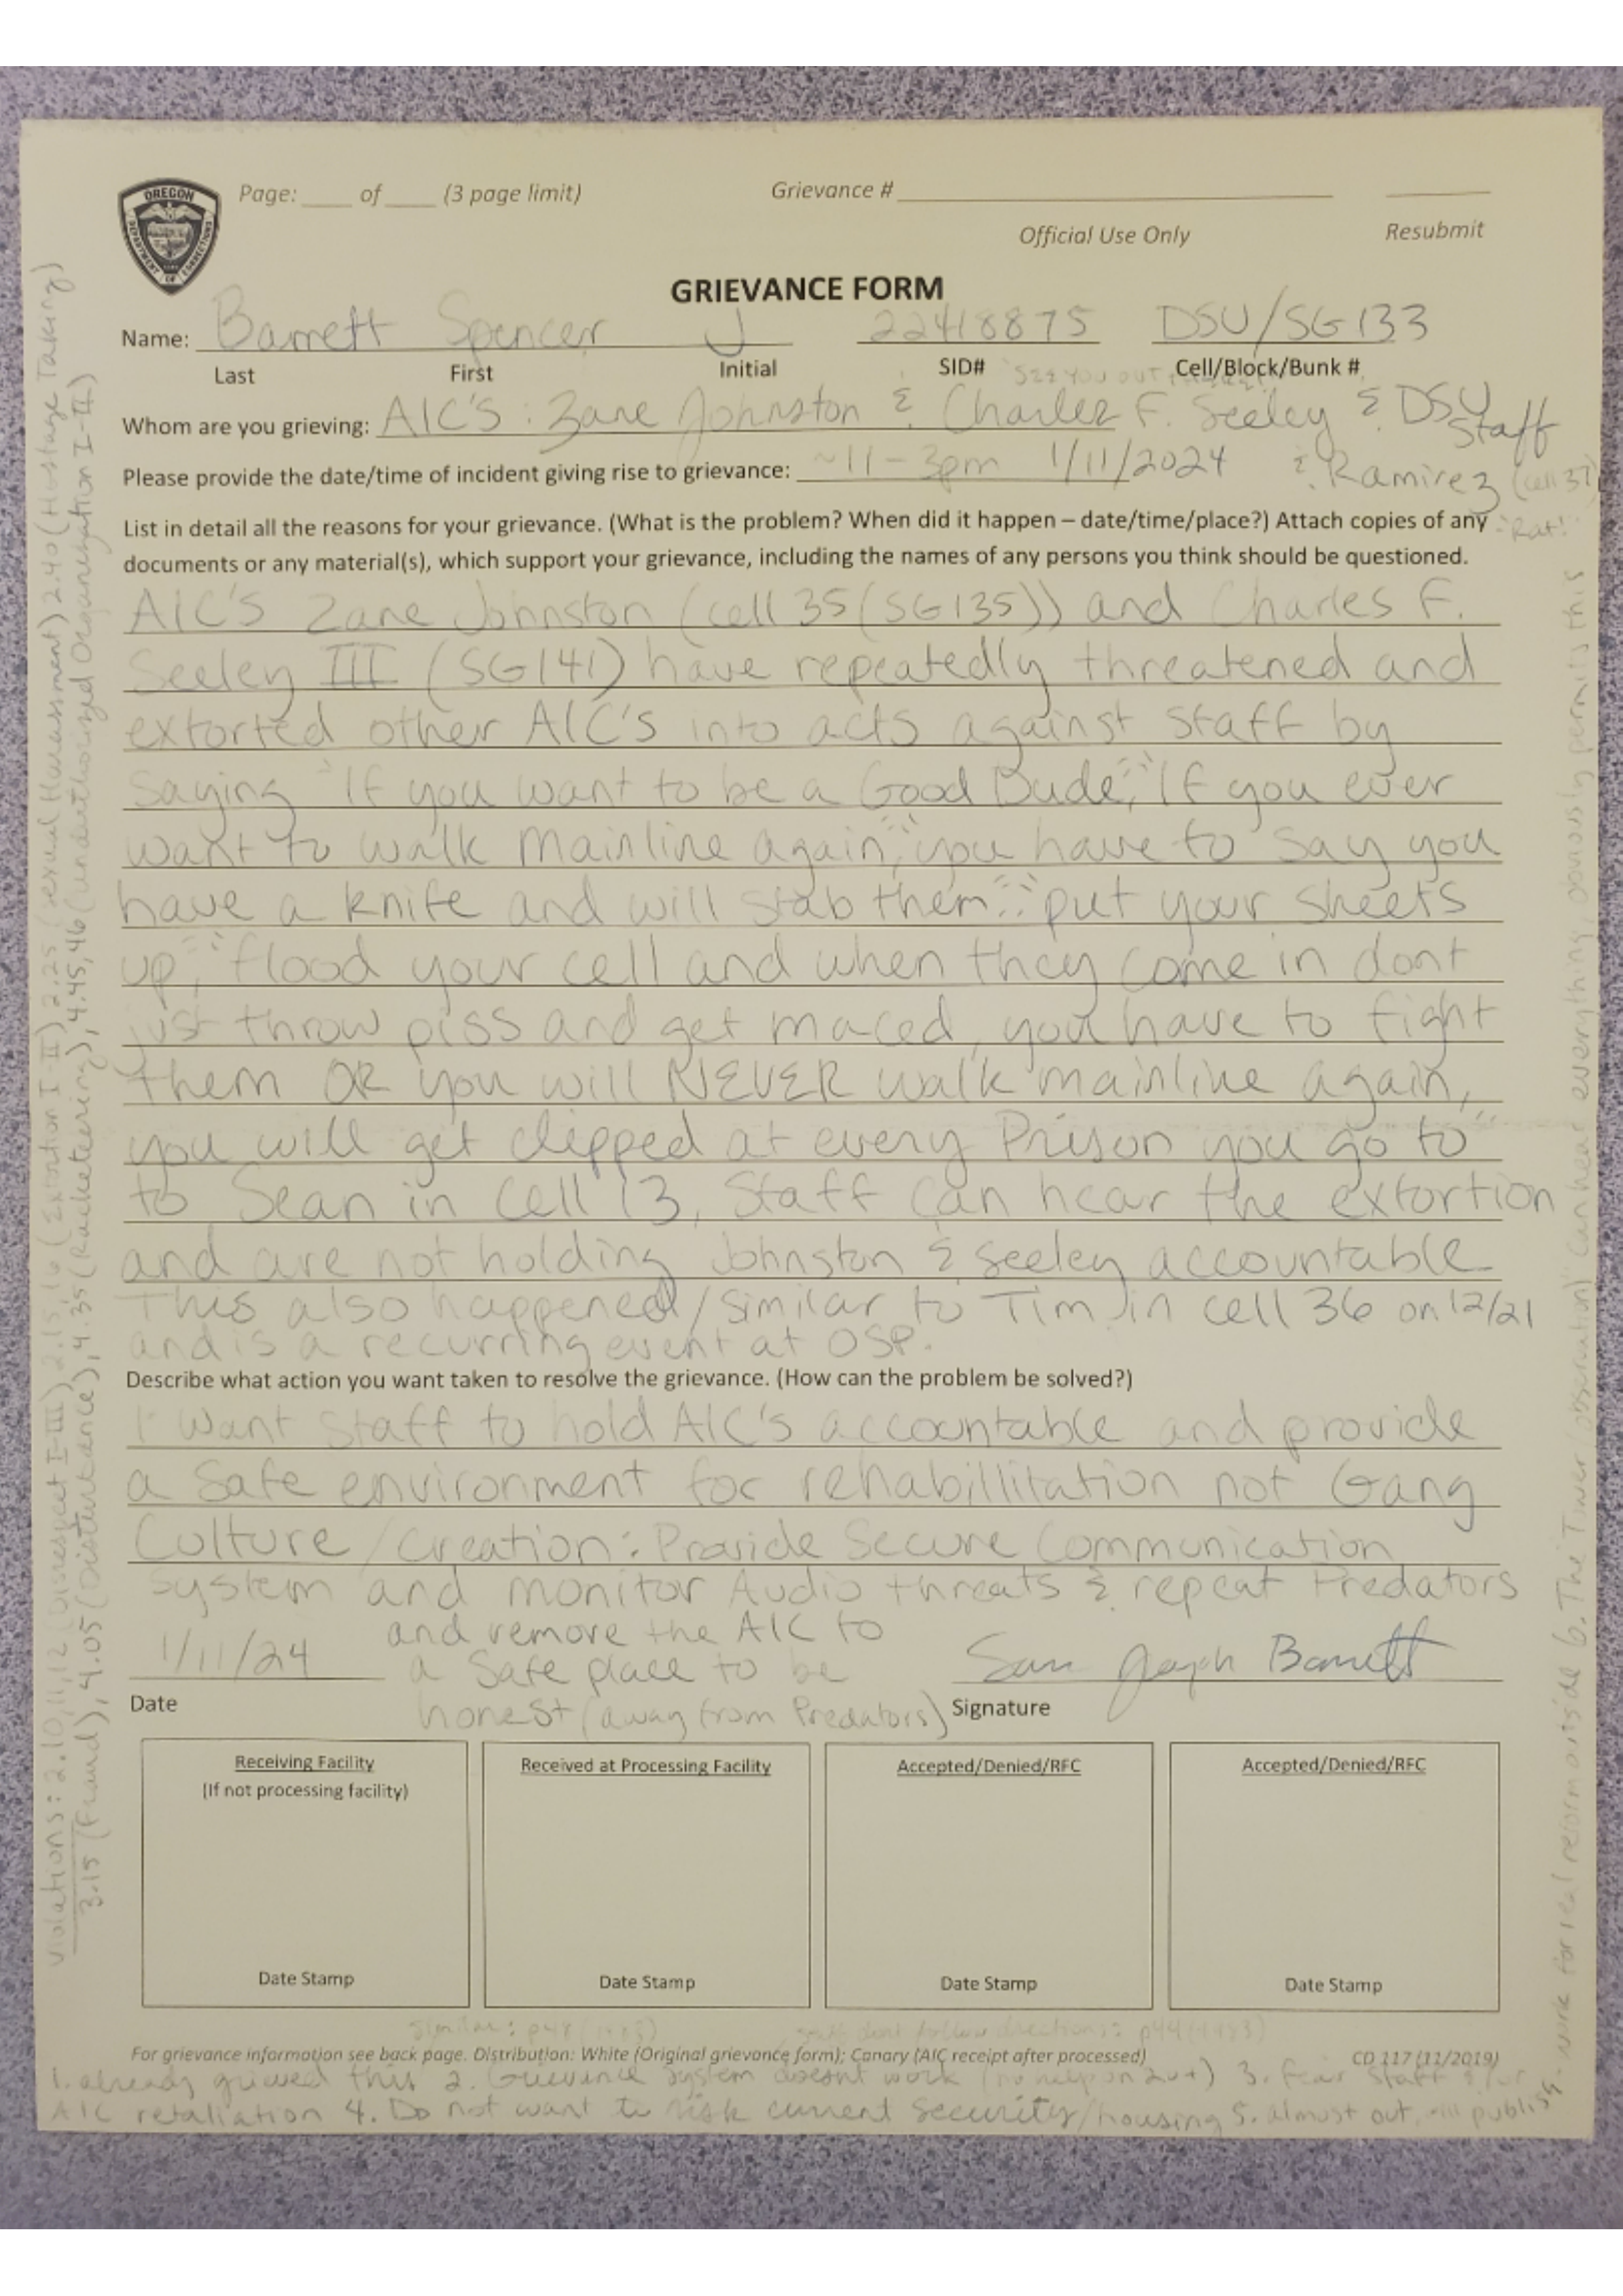 OREGON
DEPARTMENT OF CORRECTIONS
Page: ____ of ____ (3 page limit)
Grievance #
Official Use Only
Resubmit
GRIEVANCE FORM
Name: Barrett Spencer J 22418875 DSU/SG133
Last First Initial SID# Cell/Block/Bunk #
"See you out
Whom are you grieving: AIC'S: Zane Johnston & Charles F. Seeley & DSU Staff
Please provide the date/time of incident giving rise to grievance: ~11-3pm 1/11/2024 & Ramirez (cell 37)
List in detail all the reasons for your grievance. (What is the problem? When did it happen – date/time/place?) Attach copies of any
"Rat!"
documents or any material(s), which support your grievance, including the names of any persons you think should be questioned.
AIC'S Zane Johnston (cell 35 (SG135)) and Charles F.
Seeley III (SG141) have repeatedly threatened and
extorted other AIC'S into acts against Staff by
saying "If you want to be a Good Dude", "If you ever
want to walk mainline again", "you have to say you
have a knife and will stab them", "put your sheets
up", "flood your cell and when they come in dont
just throw piss and get maced, you have to fight
them OR you will NEVER walk mainline again,
you will get clipped at every Prison you go to"
to Sean in Cell 13, Staff can hear the extortion
and are not holding Johnston & Seeley accountable.
This also happened/similar to Tim in cell 36 on 12/21
and is a recurring event at OSP.
Describe what action you want taken to resolve the grievance. (How can the problem be solved?)
I want Staff to hold AIC's accountable and provide
a Safe environment for rehabillitation not Gang
Culture/Creation: Provide Secure Communication
System and monitor Audio threats & repeat Predators
and remove the AIC to
a Safe place to be
honest (away from Predators)
1/11/24
Date
Joseph Barrett
Signature
Receiving Facility
(If not processing facility)
Date Stamp
Received at Processing Facility
Date Stamp
Accepted/Denied/RFC
Date Stamp
Accepted/Denied/RFC
Date Stamp
similar: p48 (1983)
staff dont follow directions: p44 (1983)
For grievance information see back page. Distribution: White (Original grievance form); Canary (AIC receipt after processed)
CD 117 (11/2019)
1. already grieved this 2. Grievance system doesnt work (no help on 2nd+) 3. fear Staff &/or
AIC retaliation 4. Do not want to risk current Security/housing 5. almost out, will publish
work for real reform outside 6. The Tower (observation) can hear everything, obviously permits this
Violations: 2.10, 11, 12 (Disrespect I-III), 2.15, 16 (Extortion I-II), 2.25 (sexual Harassment) 2.40 (Hostage Taking)
3.15 (Fraud), 4.05 (Disturbance), 4.35 (Racketeering), 4.45, 46 (unauthorized Organization I-II)